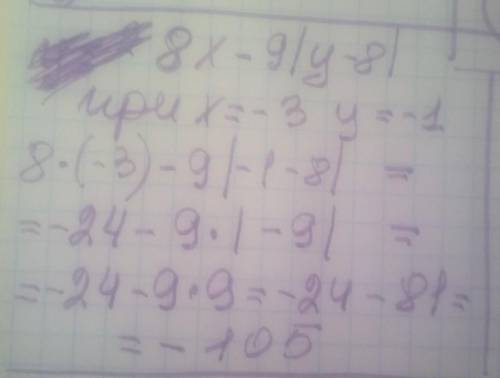 8x - 9|y-8|
при x=-3 y=-1
8·(-3)-9|-1-8| =
=-24-9·|-9| =
=-24-9·9=-24-81=
=-105